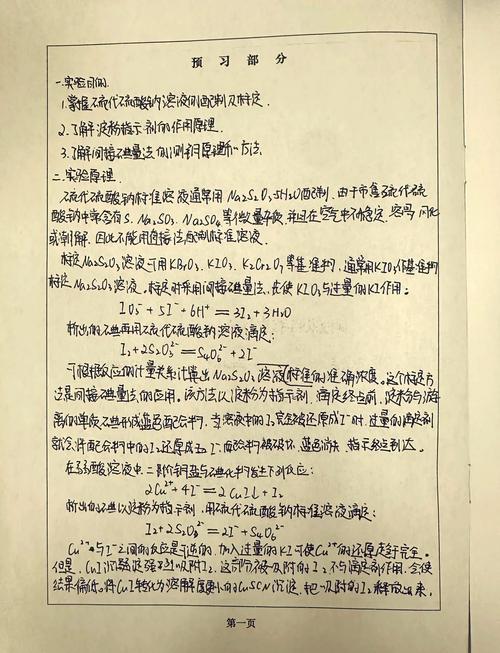 预习部分
一.实验目的.
1.掌握硫代硫酸钠溶液的配制及标定.
2.了解淀粉指示剂的作用原理.
3.了解间接碘量法的测铜原理和方法.
二.实验原理.
硫代硫酸钠标准溶液通常用Na₂S₂O₃·5H₂O配制,由于市售硫代硫
酸钠中常含有S、Na₂SO₃、Na₂SO₄等微量杂质,并且在空气中不稳定,容易风化
或潮解,因此不能用直接法配制标准溶液.
标定Na₂S₂O₃溶液可用KBrO₃、KIO₃、K₂Cr₂O₇等基准物,通常用KIO₃作基准物
标定Na₂S₂O₃溶液,标定时采用间接碘量法,先使KIO₃与过量的KI作用:
IO₃⁻+5I⁻+6H⁺=3I₂+3H₂O
析出的碘再用硫代硫酸钠溶液滴定:
I₂+2S₂O₃²⁻=S₄O₆²⁻+2I⁻
可根据反应的计量关系计算出Na₂S₂O₃溶液(标准的)准确浓度。这个标定方
法是间接碘量法的应用,该方法以淀粉为指示剂,滴定终点前,淀粉与游
离的单质碘形成蓝色配合物,当溶液中的I₂完全被还原成I⁻时,过量的滴定剂
就会将配合物中的I₂还原成I⁻而配合物被破坏,蓝色消失,指示终点到达。
在弱酸溶液中,二价铜盐与碘化物发生下列反应:
2Cu²⁺+4I⁻=2CuI↓+I₂
析出的碘以淀粉为指示剂,用硫代硫酸钠标准溶液滴定:
I₂+2S₂O₃²⁻=2I⁻+S₄O₆²⁻
Cu²⁺与I⁻之间的反应是可逆的,加入过量的KI可使Cu²⁺的还原走行完全。
但是,CuI沉淀强烈吸附I₂,这部分被吸附的I₂不与滴定剂作用,会使
结果偏低。将CuI转化为溶解度更小的CuSCN沉淀,把吸附的I₂释放出来,
第一页